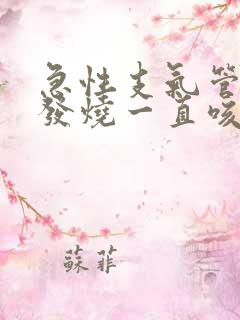 急性支氣管
發燒一直咳
蘇菲